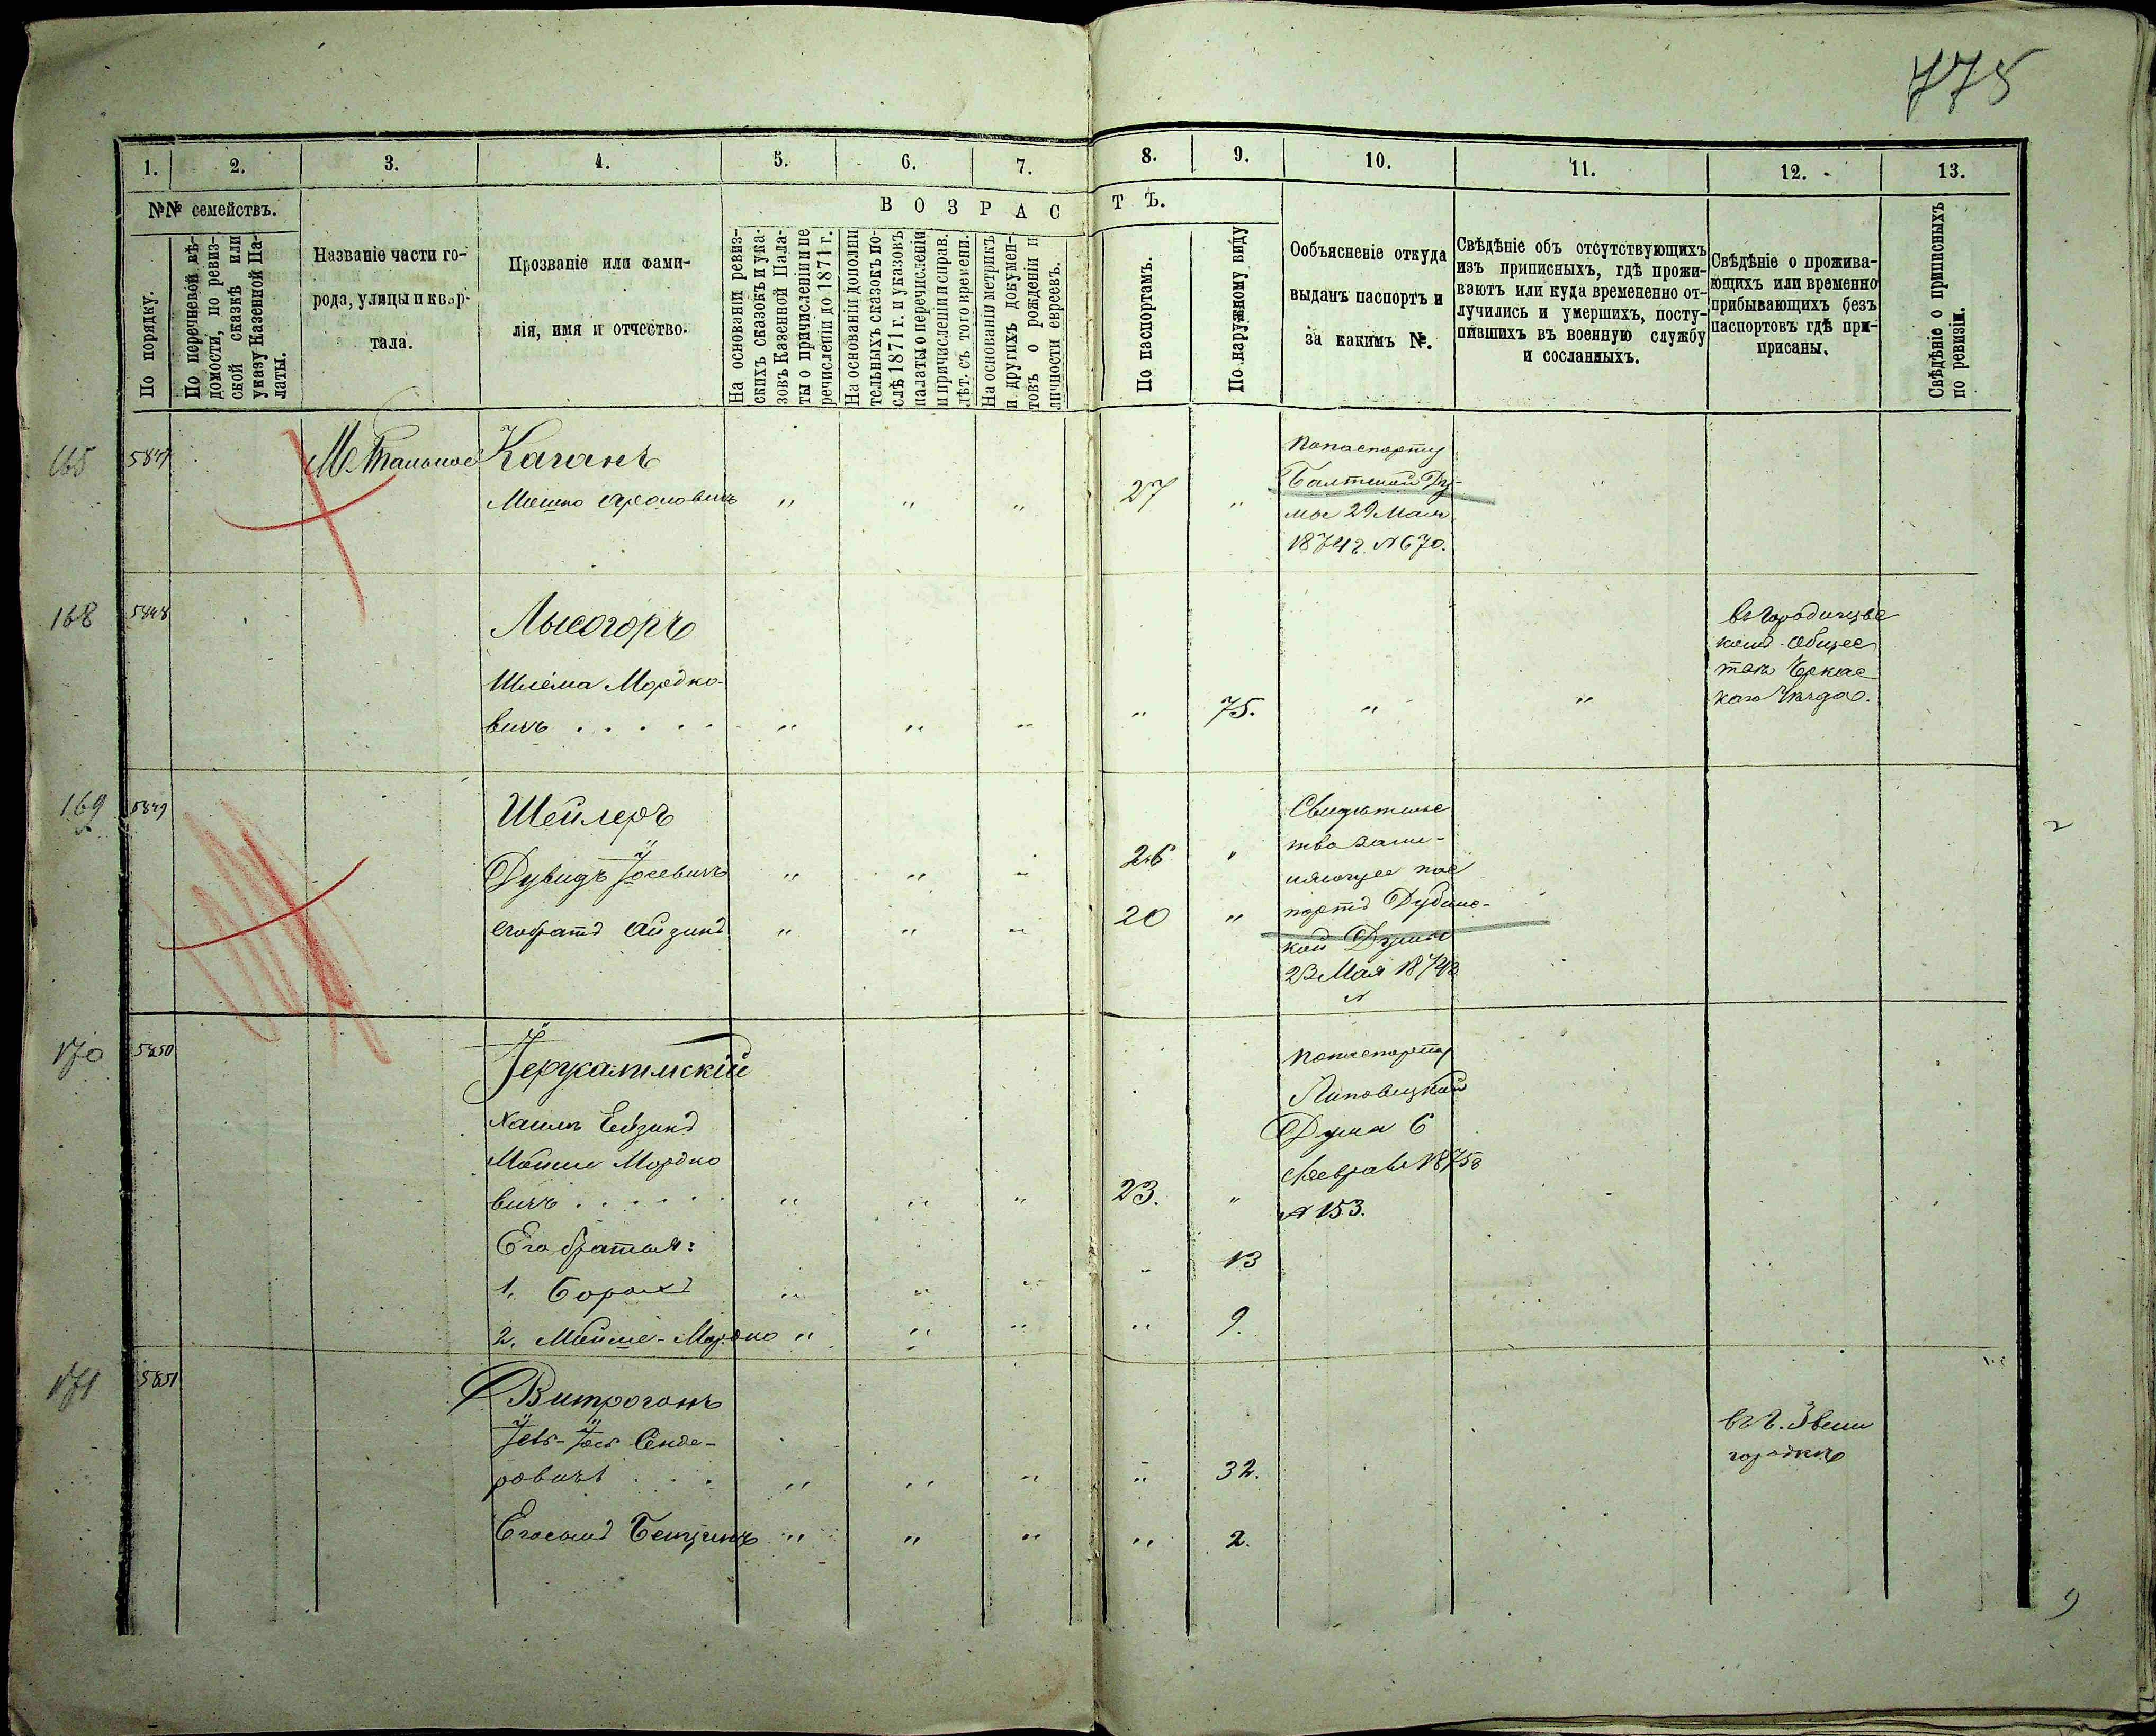 775
1. 2. 3. 4. 5. 6. 7. 8. 9. 10. 11. 12. 13.
№№ семействъ.
По порядку.
По перечневой вѣ-
домости, по ревиз-
ской сказкѣ или
указу Казенной Па-
латы.
Названіе части го-
рода, улицы и квар-
тала.
Прозваніе или фами-
лія, имя и отчество.
В О З Р А С Т Ъ.
На основаніи ревиз-
скихъ сказокъ и ука-
зовъ Казенной Пала-
ты о причисленіи и пе
речисленіи до 1871 г.
На основаніи дополни
тельныхъ сказокъ по-
слѣ 1871 г. и указовъ
палаты о перечисленіи
и причисленіи и справ.
лѣт. съ того времени.
На основаніи метрикъ
и другихъ докумен-
товъ о рожденіи и
личности евреевъ.
По паспортамъ.
По наружному виду
Ообъясненіе откуда
выданъ паспортъ и
за какимъ №.
Свѣдѣніе объ отсутствующихъ
изъ приписныхъ, гдѣ прожи-
ваютъ или куда времененно от-
лучились и умершихъ, посту-
пившихъ въ военную службу
и сосланныхъ.
Свѣдѣніе о прожива-
ющихъ или временно
прибывающихъ безъ
паспортовъ гдѣ при-
присаны.
Свѣдѣніе о приписныхъ
по ревизіи.
165 5847 М. Тальное Каганъ
Мошко Ароновичъ " " " 27 "
По паспорту
Балтской Ду-
мы 29 Мая
1874 г. № 670.
168 5848 Лысогоръ
Шлема Мордко-
вичъ . . . . . " " " " 75. " "
въ Городищес
комъ Общес
твѣ Черкас
каго Уѣзда.
169 5849 Шейлеръ
Дувидъ Іосевичъ " " " 26 "
его братъ Айзикъ " " " 20 "
Свидѣтельс
тво замѣ-
няющее пас
портъ Дубенс-
кой Думы
23 Мая 1874 г.
№
170 5850 Іерусалимскій
Хаимъ Ейзикъ
Мойше Мордко
вичъ . . . . . . " " " 23. "
По паспорту
Липовецкой
Думы 6
Февраля 1875 г
№ 153.
Его братья:
1. Борохъ " " " " 13
2. Мойше-Мордко " " " " 9.
171 5851 Витрогонъ
Сенде-
ровичъ . . . " " " " 32.
въ г. Звени
городкѣ
Его сынъ Бенціонъ " " " " 2.